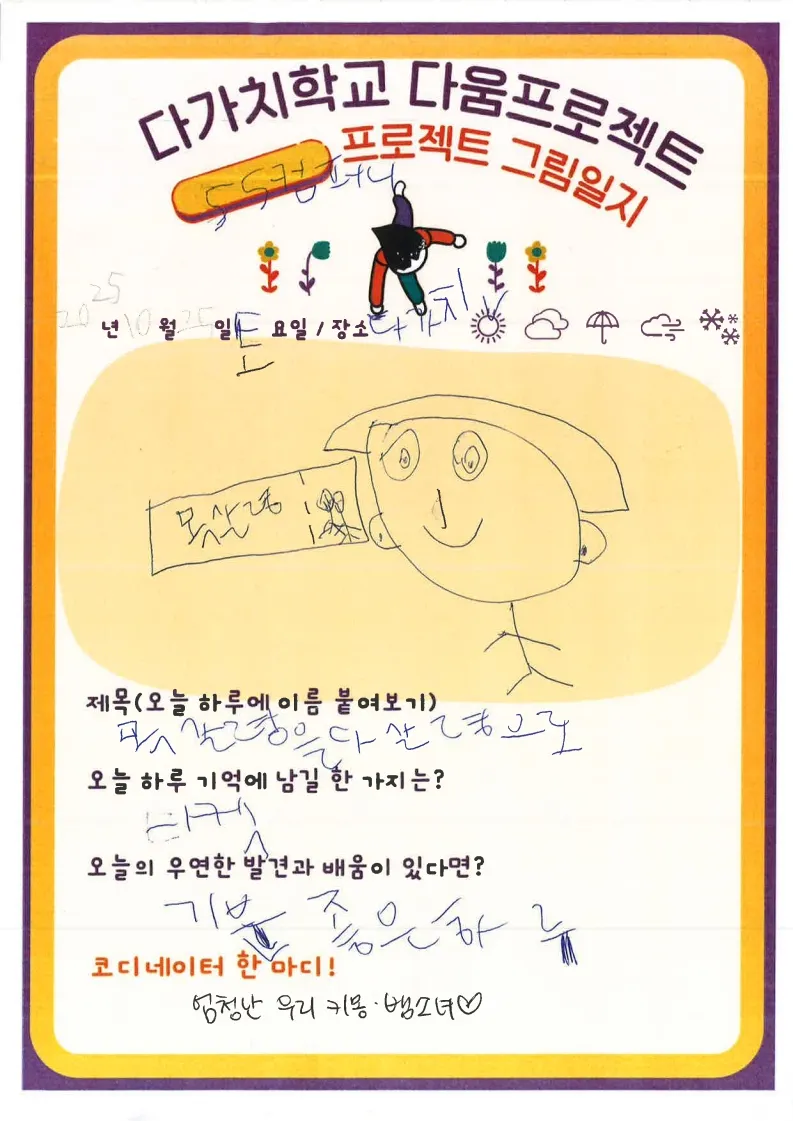 다가치학교 다움프로젝트
프로젝트 그림일지
SS컴퍼니
2025년 10월 25일 토요일 / 장소 다가치
못살령
제목(오늘 하루에 이름 붙여보기)
못살령을 다 살령으로
오늘 하루 기억에 남길 한 가지는?
마켓
오늘의 우연한 발견과 배움이 있다면?
기분 좋은 하루
코디네이터 한 마디!
엄청난 우리 키몽·뱀소녀♡